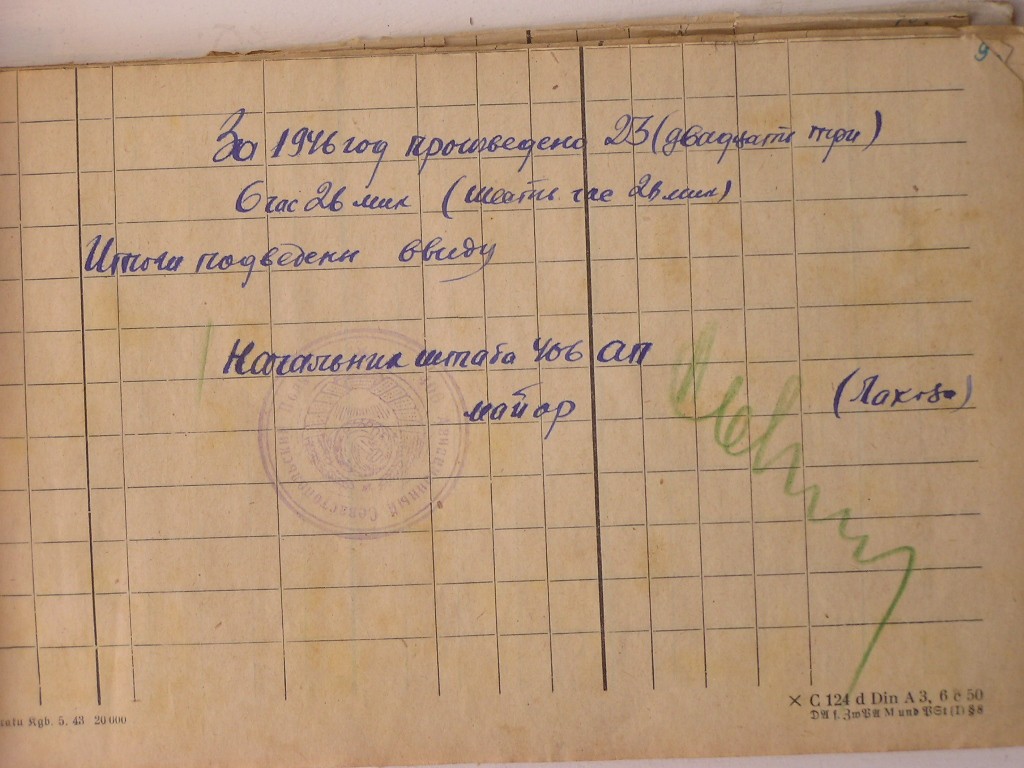 9
За 1946 год произведено 23 (двадцать три)
6 час 26 мин (шесть час 26 мин)
Итоги подведены ввиду
Начальник штаба 406 АП
майор
× C 124 d Din A 3, 6 50
Kgb. 5. 43 20 000
DA f. ZwBA M und BSt (I) § 8